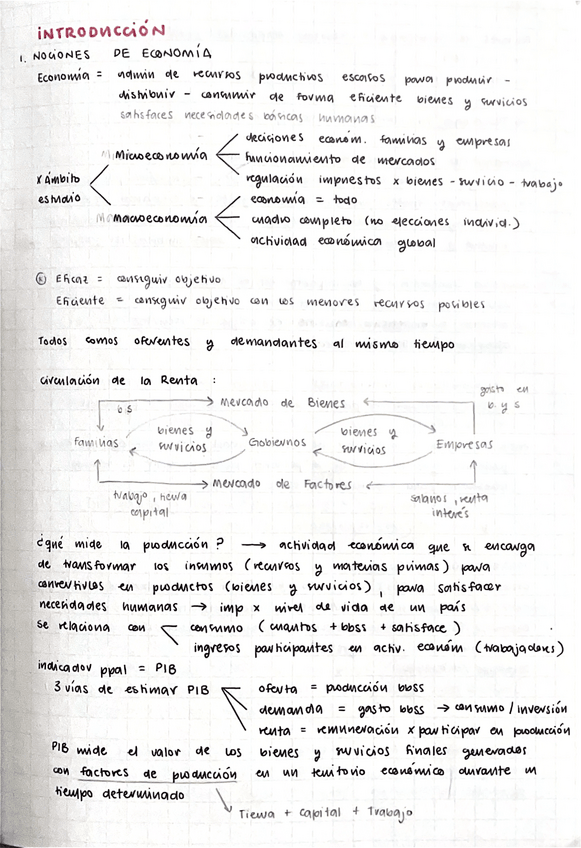 INTRODUCCIÓN
1. NOCIONES DE ECONOMÍA
Economía = admin de recursos productivos escasos para producir -
distribuir - consumir de forma eficiente bienes y servicios
satisfaces necesidades básicas humanas
Microeconomía
decisiones económ. familias y empresas
funcionamiento de mercados
regulación impuestos x bienes - servicio - trabajo
x ámbito
estudio
Macroeconomía
economía = todo
cuadro completo (no elecciones individ.)
actividad económica global
Eficaz = conseguir objetivo
Eficiente = conseguir objetivo con los menores recursos posibles
Todos somos oferentes y demandantes al mismo tiempo
Circulación de la Renta :
gasto en
b. y s
Mercado de Bienes
b s
Familias
bienes y
servicios
Gobiernos
bienes y
servicios
Empresas
Mercado de Factores
trabajo, tierra
capital
salarios, renta
interés
¿Qué mide la producción? → actividad económica que se encarga
de transformar los insumos (recursos y materias primas) para
convertirlos en productos (bienes y servicios), para satisfacer
necesidades humanas → imp x nivel de vida de un país
se relaciona con
consumo (cuantos + bbss + satisface)
ingresos participantes en activ. económ (trabajadores)
indicador ppal = PIB
3 vías de estimar PIB
oferta = producción bbss
demanda = gasto bbss → consumo / inversión
renta = remuneración x participar en producción
PIB mide el valor de los bienes y servicios finales generados
con factores de producción en un territorio económico durante un
tiempo determinado
Tierra + capital + Trabajo